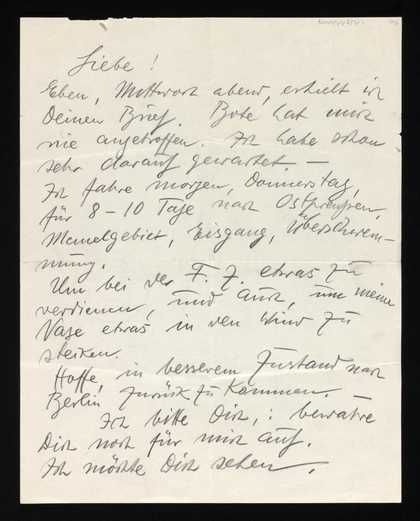 Liebe !
Eben, Mittwoch abend, erhielt ich
Deinen Brief. Bote hat mich
nie angetroffen. Ich habe schon
sehr darauf gewartet –
Ich fahre morgen, Donnerstag,
für 8–10 Tage nach Ostpreußen,
Memelgebiet, Eisgang, Überschwem-
mung.
Um bei der F. Z. etwas zu
verdienen, und auch, um meine
Nase etwas in den Wind zu
stecken.
Hoffe, in besserem Zustand nach
Berlin zurück zu kommen.
Ich bitte Dich, : bewahre
Dich noch für mich auf.
Ich möchte Dich sehen.